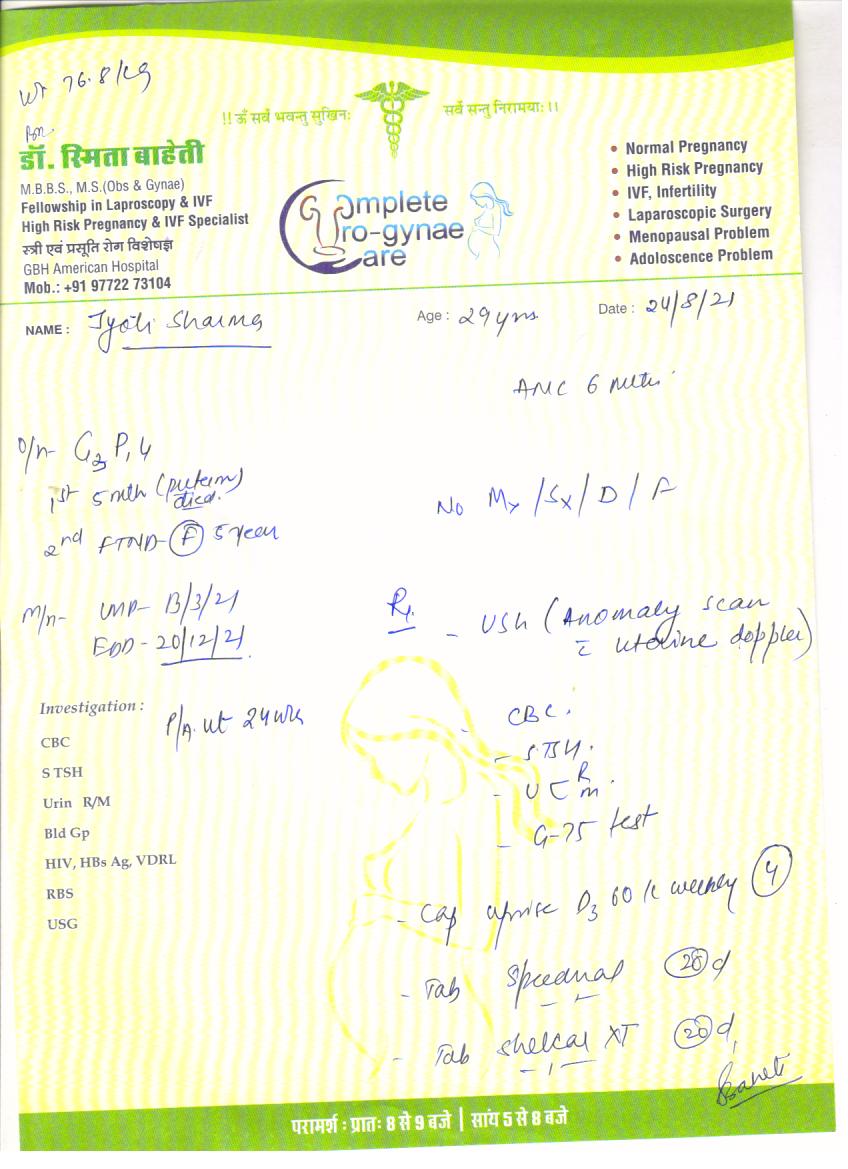 Wt 76.8 kg
!! ॐ सर्वे भवन्तु सुखिनः सर्वे सन्तु निरामयाः !!
डॉ. स्मिता बाहेती
M.B.B.S., M.S.(Obs & Gynae)
Fellowship in Laproscopy & IVF
High Risk Pregnancy & IVF Specialist
स्त्री एवं प्रसूति रोग विशेषज्ञ
GBH American Hospital
Mob.: +91 97722 73104
Complete
Uro-gynae
Care
• Normal Pregnancy
• High Risk Pregnancy
• IVF, Infertility
• Laparoscopic Surgery
• Menopausal Problem
• Adoloscence Problem
NAME : Jyoti Sharma Age : 29 yrs Date : 24/8/21
ANC 6 mths
O/h- G3 P1 L1
1st 5 mth (preterm)
died.
2nd FTND- F 5 year
No Mx /Sx/ D / A
M/h- LMP- 13/3/21
EDD- 20/12/21
Rx
- USG (Anomaly scan
c uterine doppler)
Investigation :
P/A. ut 24 wks
CBC
S TSH
Urin R/M
Bld Gp
HIV, HBs Ag, VDRL
RBS
USG
- CBC.
- S.TSH.
- U C R/m.
- G-75 test
- Cap uprise D3 60 K weekly 4
- Tab 28 d
- Tab Shelcal XT 28 d
परामर्श : प्रातः 8 से 9 बजे | सांय 5 से 8 बजे